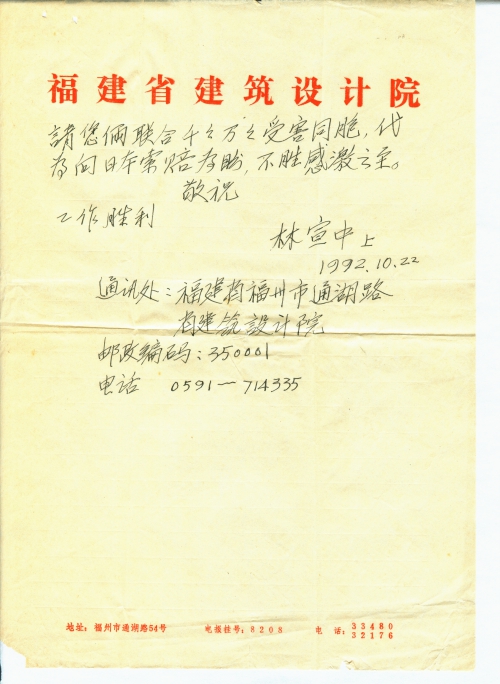 福建省建筑设计院
請您俩联合千々万々受害同胞，代
为向日本索赔为盼，不胜感激之至。
敬祝
工作胜利
林宣中上
1992.10.22
通讯处：福建省福州市通湖路
省建筑設计院
邮政编码：350001
电话 0591—714335
地址：福州市通湖路54号 电报挂号：8208 电话：33480
32176